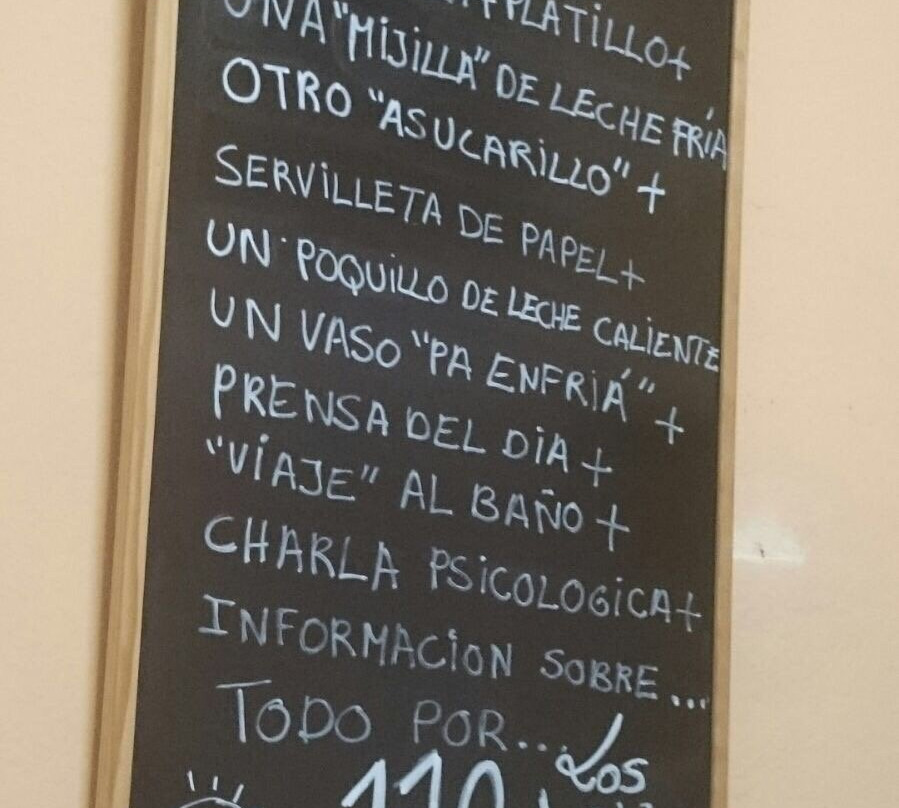 PLATILLO+
UNA "MIJILLA" DE LECHE FRÍA
OTRO "ASUCARILLO" +
SERVILLETA DE PAPEL+
UN POQUILLO DE LECHE CALIENTE
UN VASO "PA ENFRIÁ" +
PRENSA DEL DIA +
"VIAJE" AL BAÑO +
CHARLA PSICOLOGICA+
INFORMACION SOBRE...
TODO POR... LOS
110